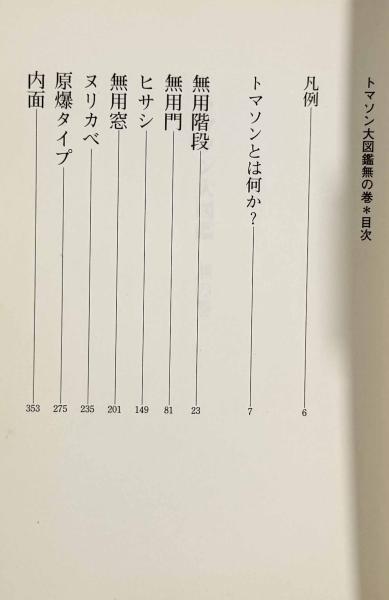 トマソン大図鑑無の巻＊目次
凡例 6
トマソンとは何か? 7
無用階段 23
無用門 81
ヒサシ 149
無用窓 201
ヌリカベ 235
原爆タイプ 275
内面 353